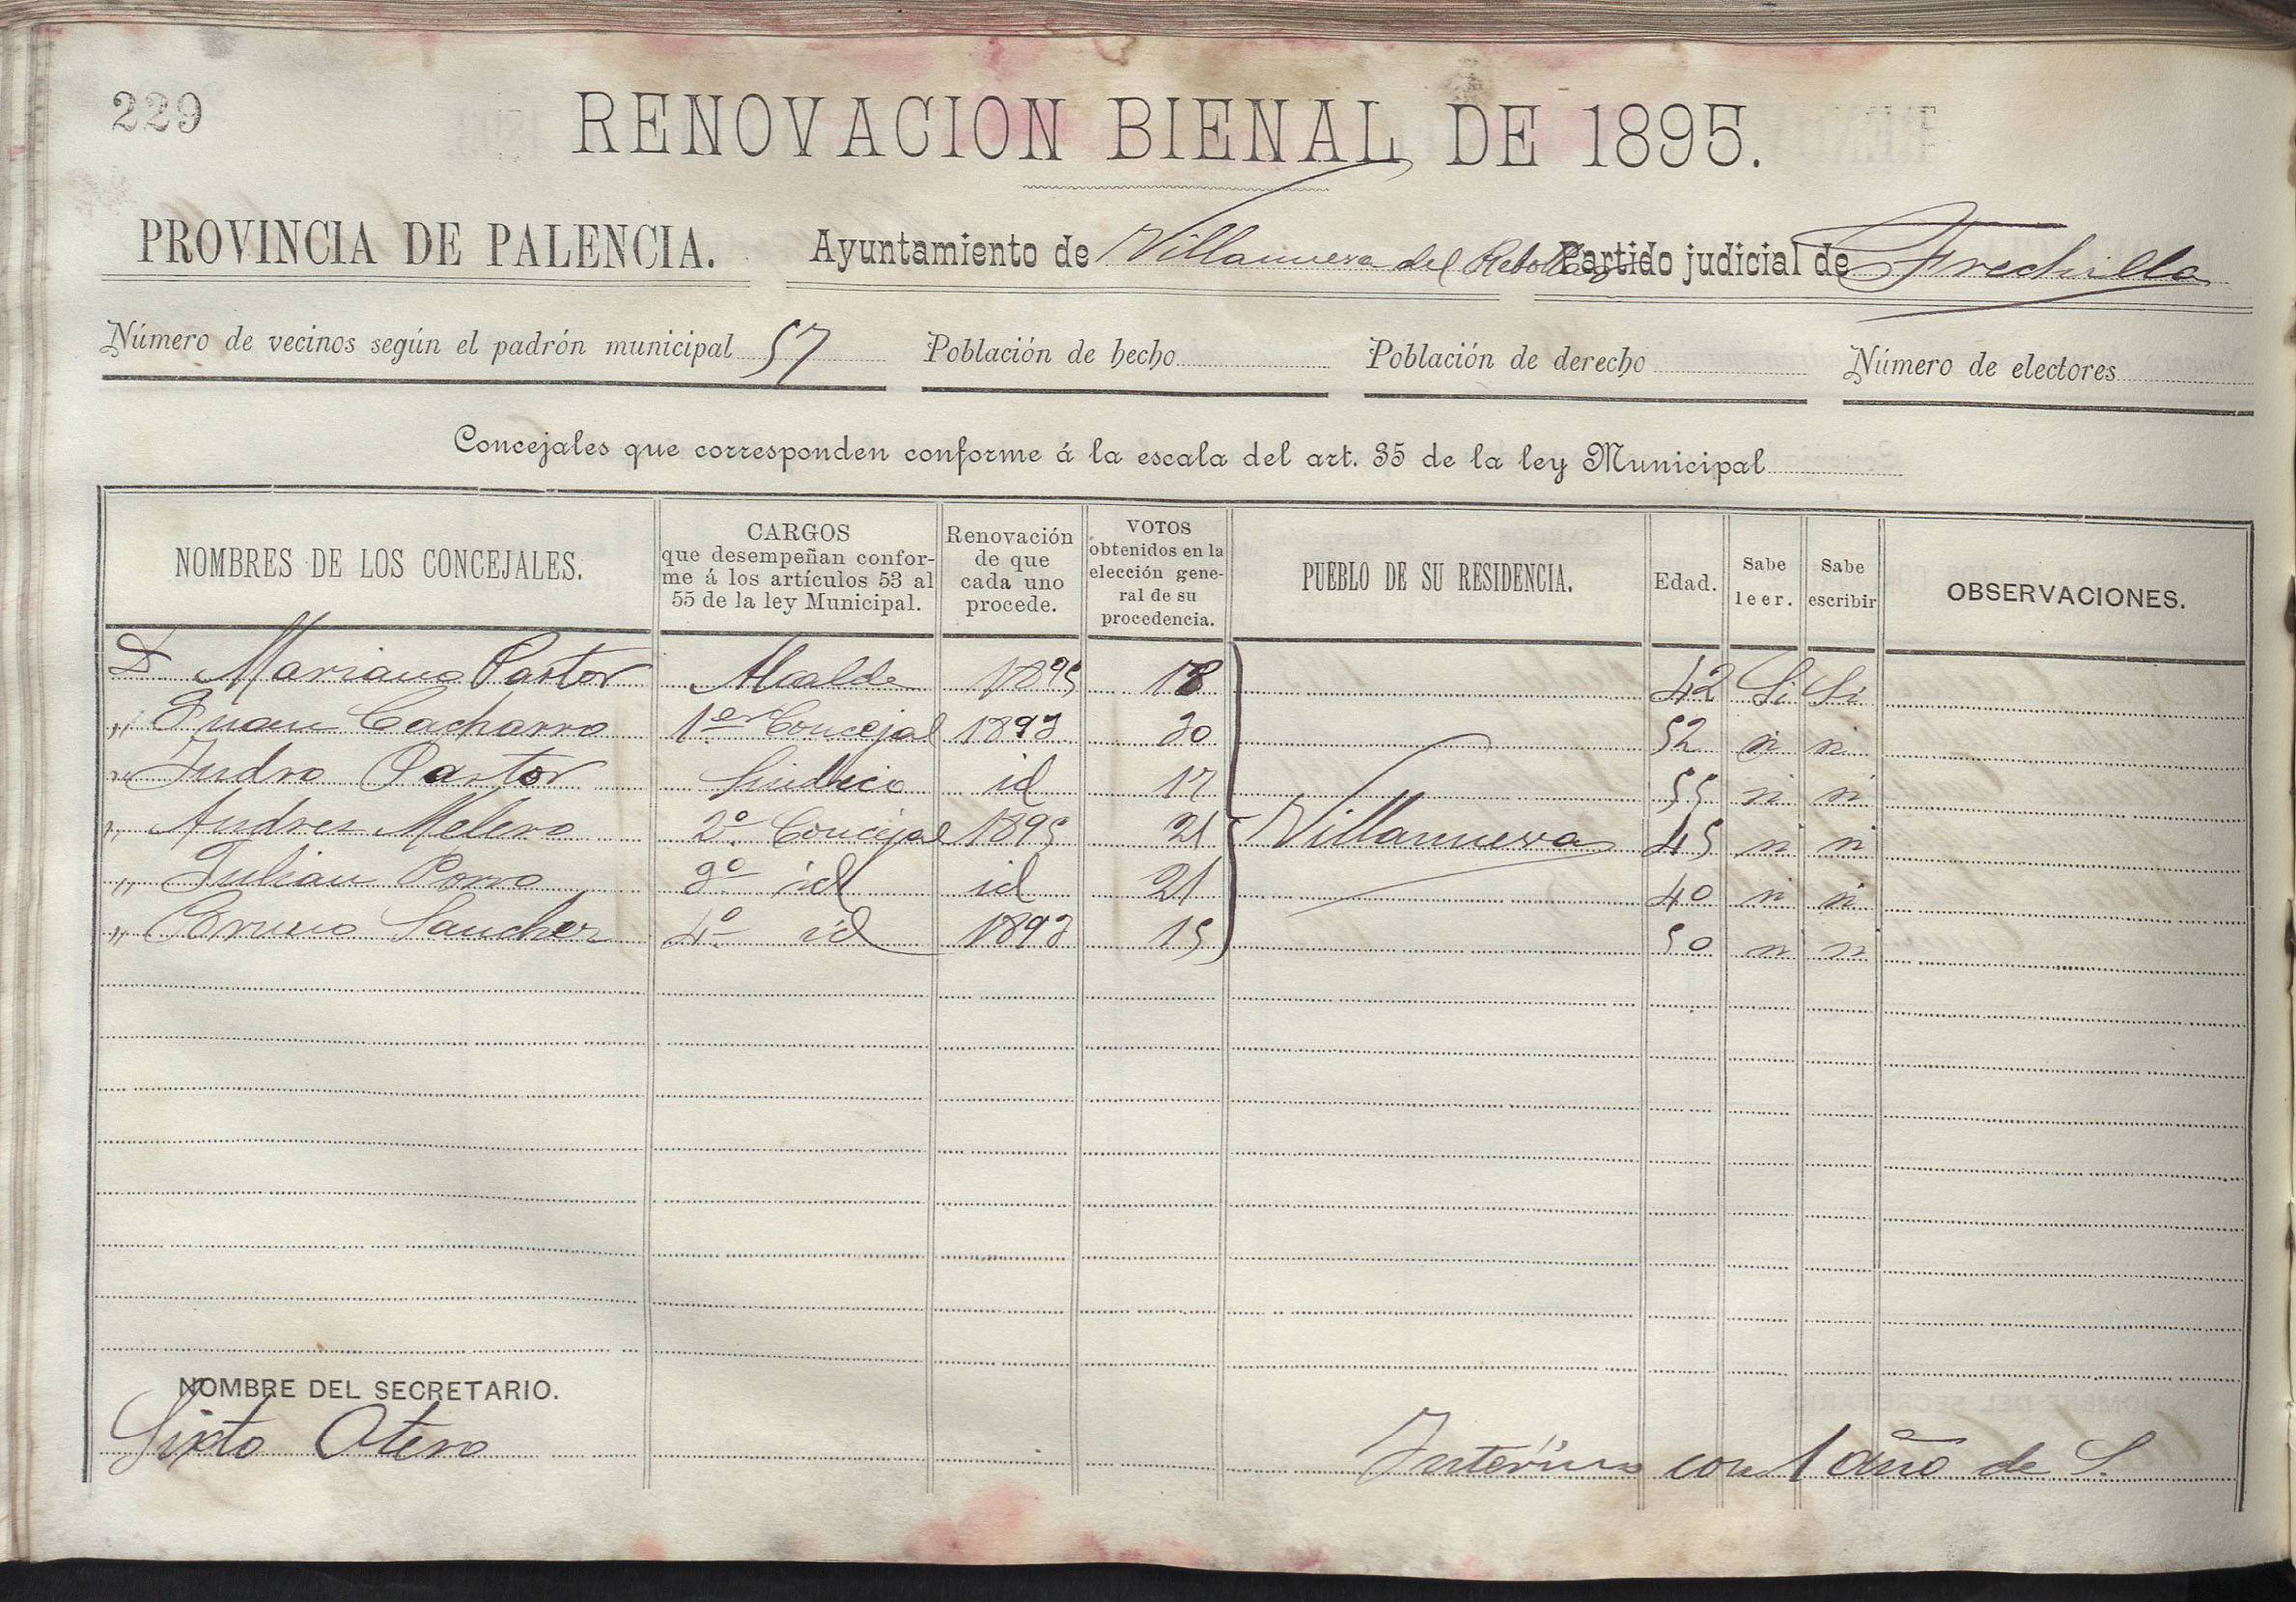 229
RENOVACION BIENAL DE 1895.
PROVINCIA DE PALENCIA. Ayuntamiento de Villanueva del Rebollar Partido judicial de Frechilla
Número de vecinos según el padrón municipal 57 Población de hecho Población de derecho Número de electores
Concejales que corresponden conforme á la escala del art. 35 de la ley Municipal
NOMBRES DE LOS CONCEJALES.
CARGOS
que desempeñan confor-
me á los artículos 53 al
55 de la ley Municipal.
Renovación
de que
cada uno
procede.
VOTOS
obtenidos en la
elección gene-
ral de su
procedencia.
PUEBLO DE SU RESIDENCIA.
Edad.
Sabe
leer.
Sabe
escribir
OBSERVACIONES.
D. Mariano Pastor Alcalde 1895 18 42 Si Si
„ Juan Cacharro 1er Concejal 1893 20 52 id id
„ Isidro Pastor Sindico id 17 55 id id
„ Andres Melero 2º Concejal 1895 21 Villanueva 45 id id
„ Julian Porro 3º id id 21 40 id id
„ Bruno Sanchez 4º id 1893 15 50 id id
NOMBRE DEL SECRETARIO.
Sixto Otero Interino con 1 año de S.